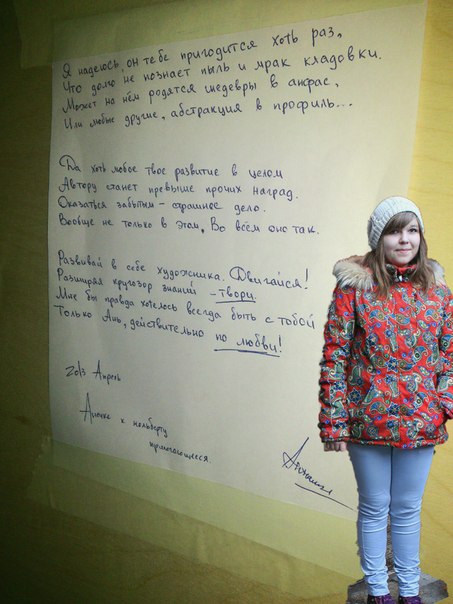 Я надеюсь, он тебе пригодится хоть раз,
Что долго не познает пыль и мрак кладовки.
Может на нём родятся шедевры в анфас,
Или любые другие, абстракция в профиль...
Да хоть любое твое развитие в целом
Автору станет превыше прочих наград.
Оказаться забытым – страшное дело.
Вообще не только в этом, Во всём оно так.
Развивай в себе художника. Двигайся!
Расширяя кругозор знаний – твори.
Мне бы правда хотелось всегда быть с тобой
Только Ань, действительно по любви!
2013 Апрель
Анечке к мольберту
прилагающееся.